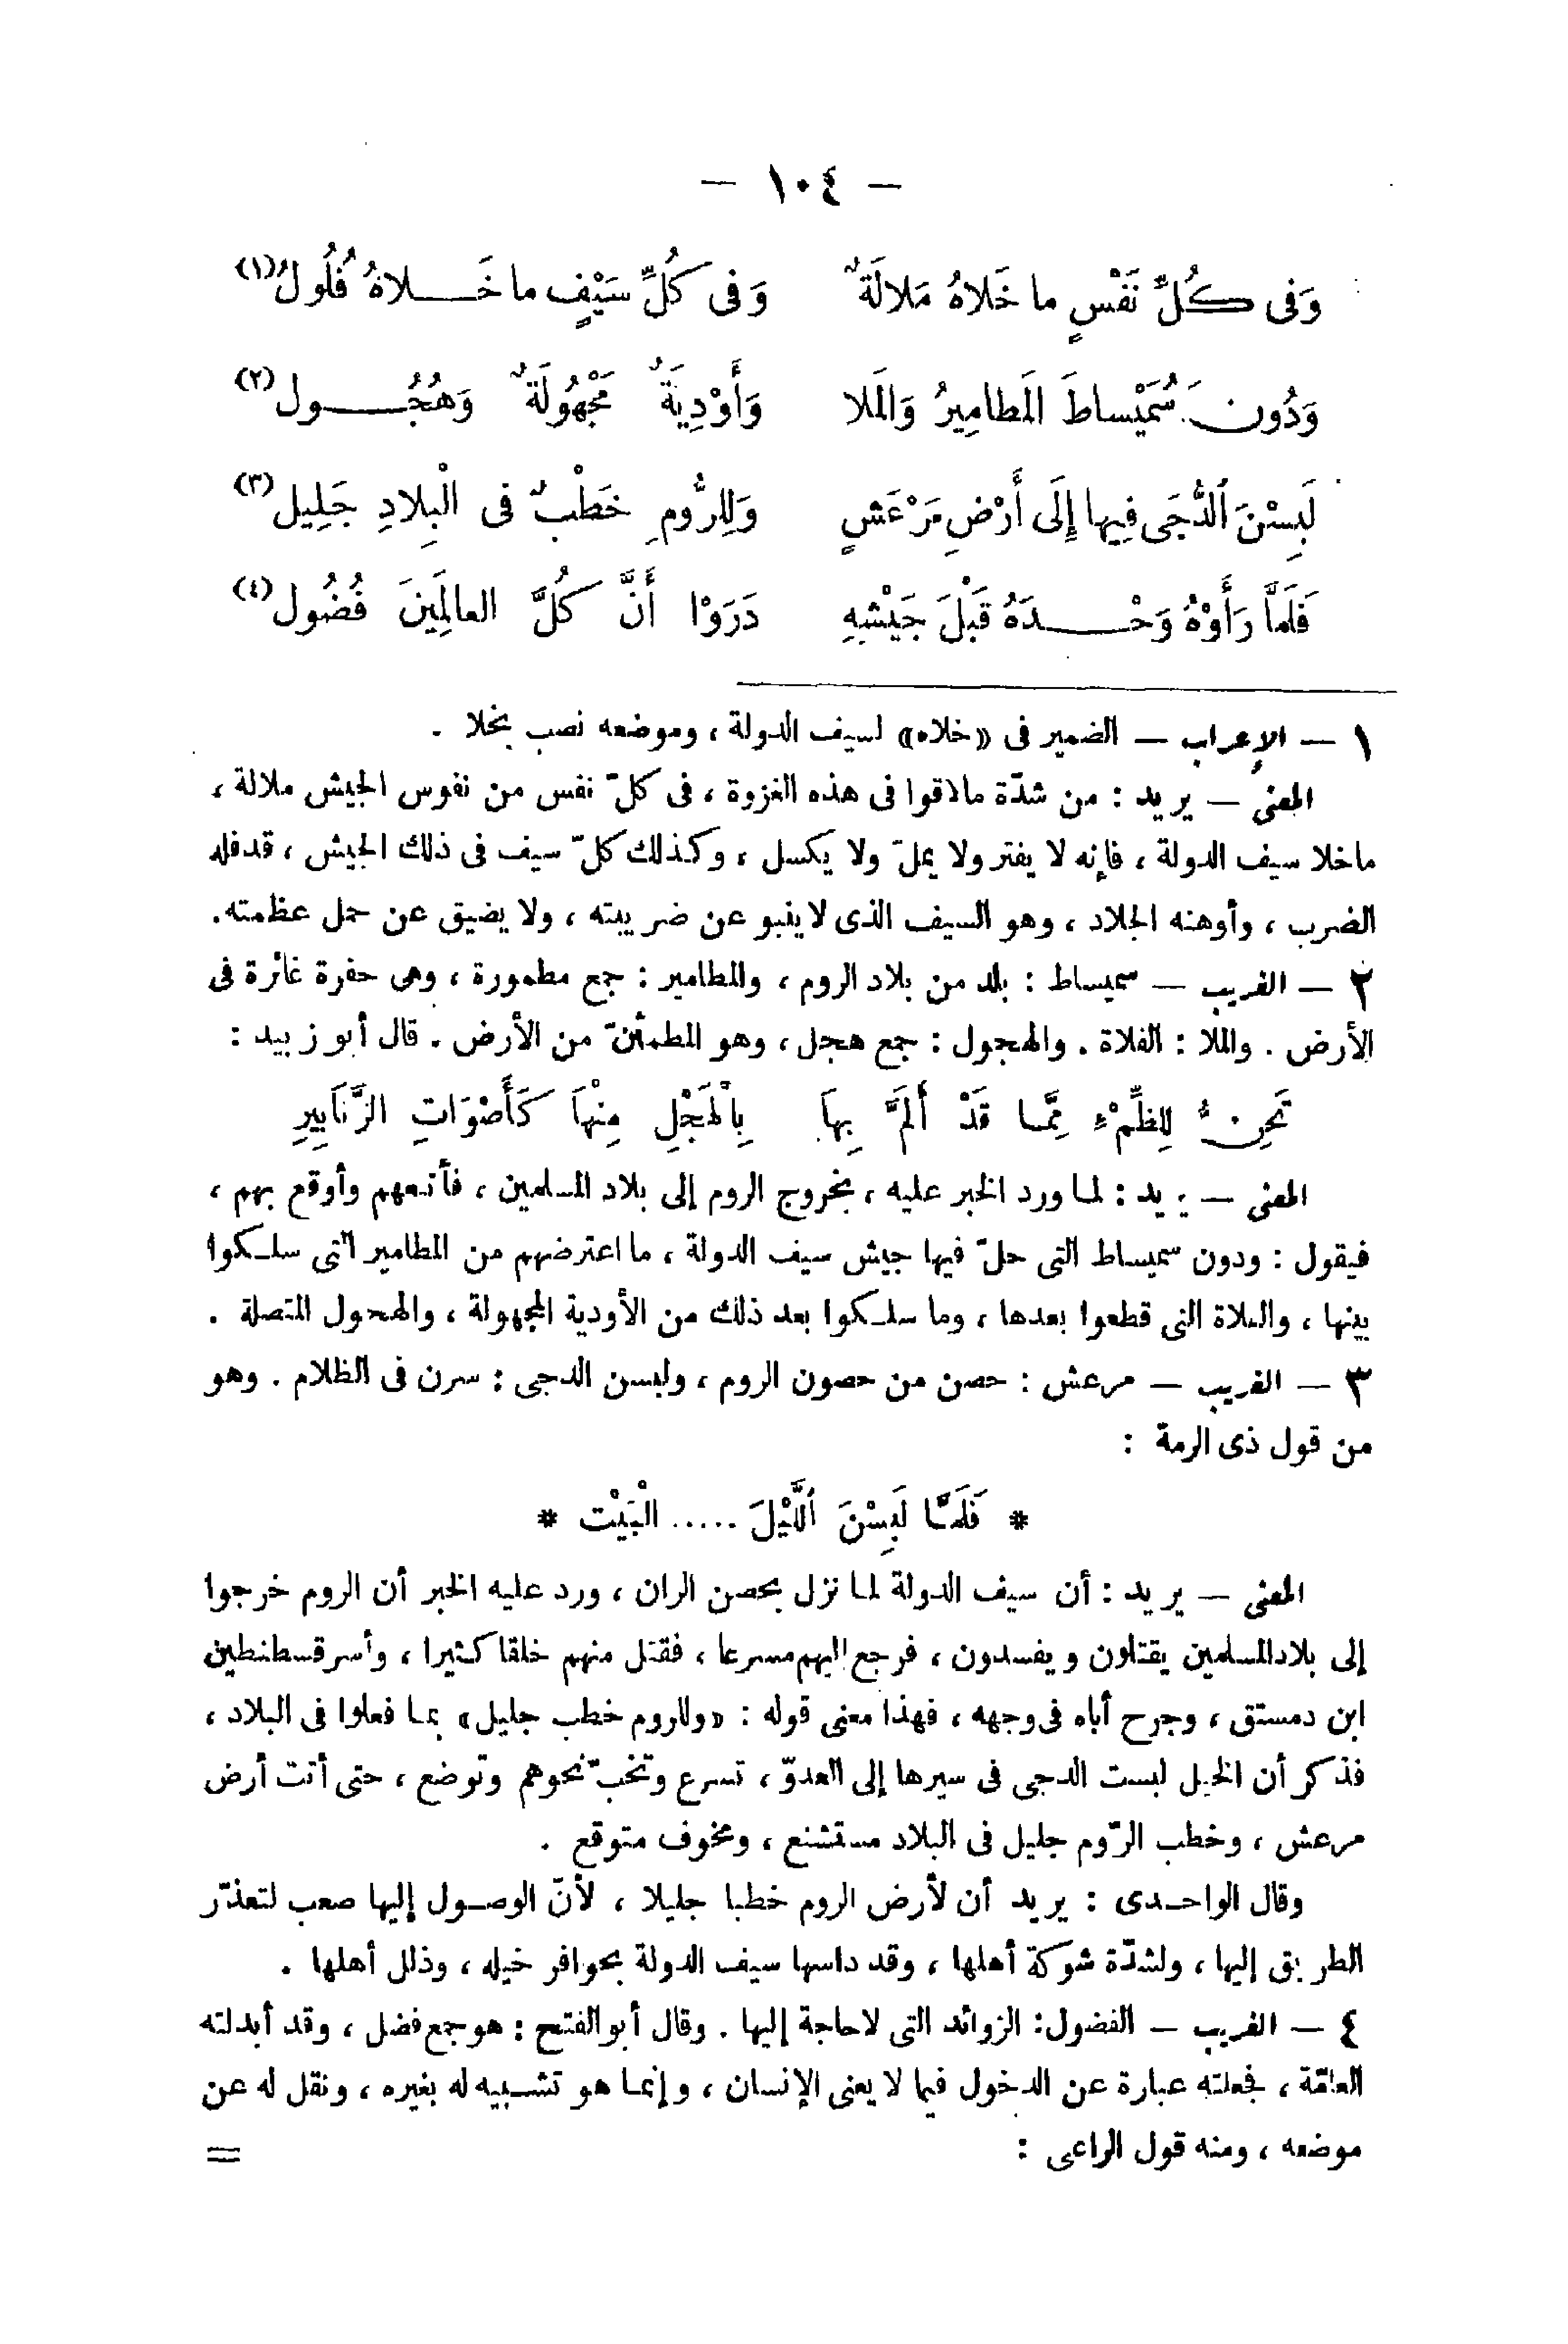 — ١٠٤ —
وَفى كُلِّ نَفْسٍ ما خَلاهُ مَلالَةٌ وَفى كُلِّ سَيْفٍ ما خَلاهُ فُلُولُ (١)
وَدُونَ سُمَيْساطَ المَطامِيرُ وَالمَلا وَأَوْدِيَةٌ مَجْهُولَةٌ وَهُجُول (٢)
لَبِسْنَ ٱلدُّجَى فِيها إِلَى أَرْضِ مَرْعَشٍ وَلِلرُّومِ خَطْبٌ فى الْبِلادِ جَلِيل (٣)
فَلَمَّا رَأَوْهُ وَحْدَهُ قَبْلَ جَيْشِهِ دَرَوْا أَنَّ كُلَّ العالَمِينَ فُضُول (٤)
١ — الإعراب — الضمير فى «خلاه» لسيف الدولة ، وموضعه نصب بخلا .
المعنى — يريد : من شدّة مالاقوا فى هذه الغزوة ، فى كلّ نفس من نفوس الجيش ملالة ،
ماخلا سيف الدولة ، فإنه لا يفتر ولا يملّ ولا يكسل ، وكذلك كلّ سيف فى ذلك الجيش ، قد فله
الضرب ، وأوهنه الجلاد ، وهو السيف الذى لاينبو عن ضريبته ، ولا يضيق عن حمل عظمته.
٢ — الغريب — سميساط : بلد من بلاد الروم ، والمطامير : جمع مطمورة ، وهى حفرة غائرة فى
الأرض . والملا : الفلاة . والهجول : جمع هجل ، وهو المطمئنّ من الأرض . قال أبو زبيد :
تَحِنُّ لِلظِّمْءِ مِمَّا قَدْ أَلَمَّ بِهَا بِالْهَجْلِ مِنْهَا كَأَصْوَاتِ الزَّنَابِيرِ
المعنى — يريد : لما ورد الخبر عليه ، بخروج الروم إلى بلاد المسلمين ، فأتبعهم وأوقع بهم ،
فيقول : ودون سميساط التى حلّ فيها جيش سيف الدولة ، ما اعترضهم من المطامير التى سلكوا
بينها ، والملاة التى قطعوا بعدها ، وما سلكوا بعد ذلك من الأودية المجهولة ، والهجول المتصلة .
٣ — الغريب — مرعش : حصن من حصون الروم ، ولبسن الدجى : سرن فى الظلام . وهو
من قول ذى الرمة :
* فَلَمَّا لَبِسْنَ ٱللَّيْلَ ..... الْبَيْت *
المعنى — يريد : أن سيف الدولة لما نزل بحصن الران ، ورد عليه الخبر أن الروم خرجوا
إلى بلاد المسلمين يقتلون ويفسدون ، فرجع إليهم مسرعا ، فقتل منهم خلقا كثيرا ، وأسر قسطنطين
ابن دمستق ، وجرح أباه فى وجهه ، فهذا معنى قوله : «وللروم خطب جليل» بما فعلوا فى البلاد ،
فذكر أن الخيل لبست الدجى فى سيرها إلى العدوّ ، تسرع وتخبّ نحوهم وتوضع ، حتى أتت أرض
مرعش ، وخطب الرّوم جليل فى البلاد مستشنع ، ومخوف متوقع .
وقال الواحدى : يريد أن لأرض الروم خطبا جليلا ، لأنّ الوصول إليها صعب لتعذّر
الطريق إليها ، ولشدّة شوكة أهلها ، وقد داسها سيف الدولة بحوافر خيله ، وذلل أهلها .
٤ — الغريب — الفضول: الزوائد التى لاحاجة إليها . وقال أبوالفتح : هو جمع فضل ، وقد أبدلته
العامّة ، فجعلته عبارة عن الدخول فيما لا يعنى الإنسان ، وإنما هو تشبيه له بغيره ، ونقل له عن
موضعه ، ومنه قول الراعى : =